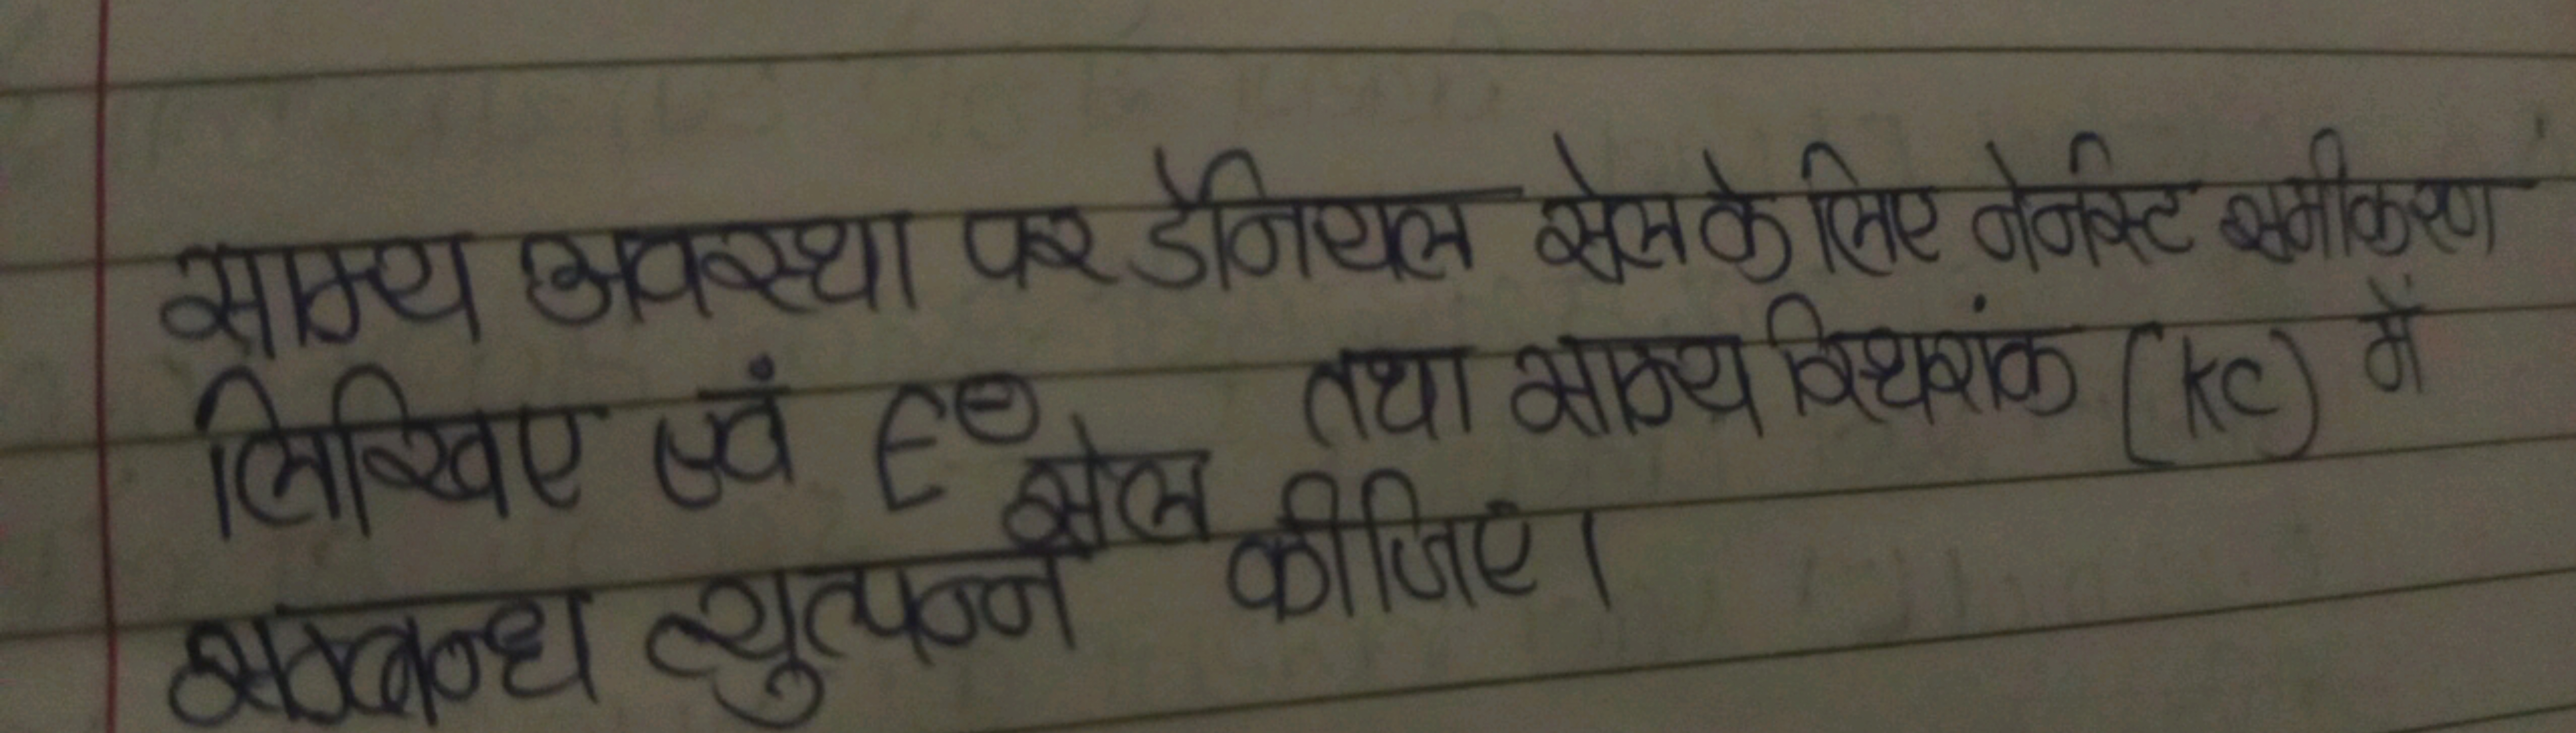 साम्य अवस्था पर डेनियल सेल के लिए नेर्नस्ट समीकरण
लिखिए एवं E⊖ सेल तथा साम्य स्थिरांक (kc) में
सम्बन्ध व्युत्पन्न कीजिए।